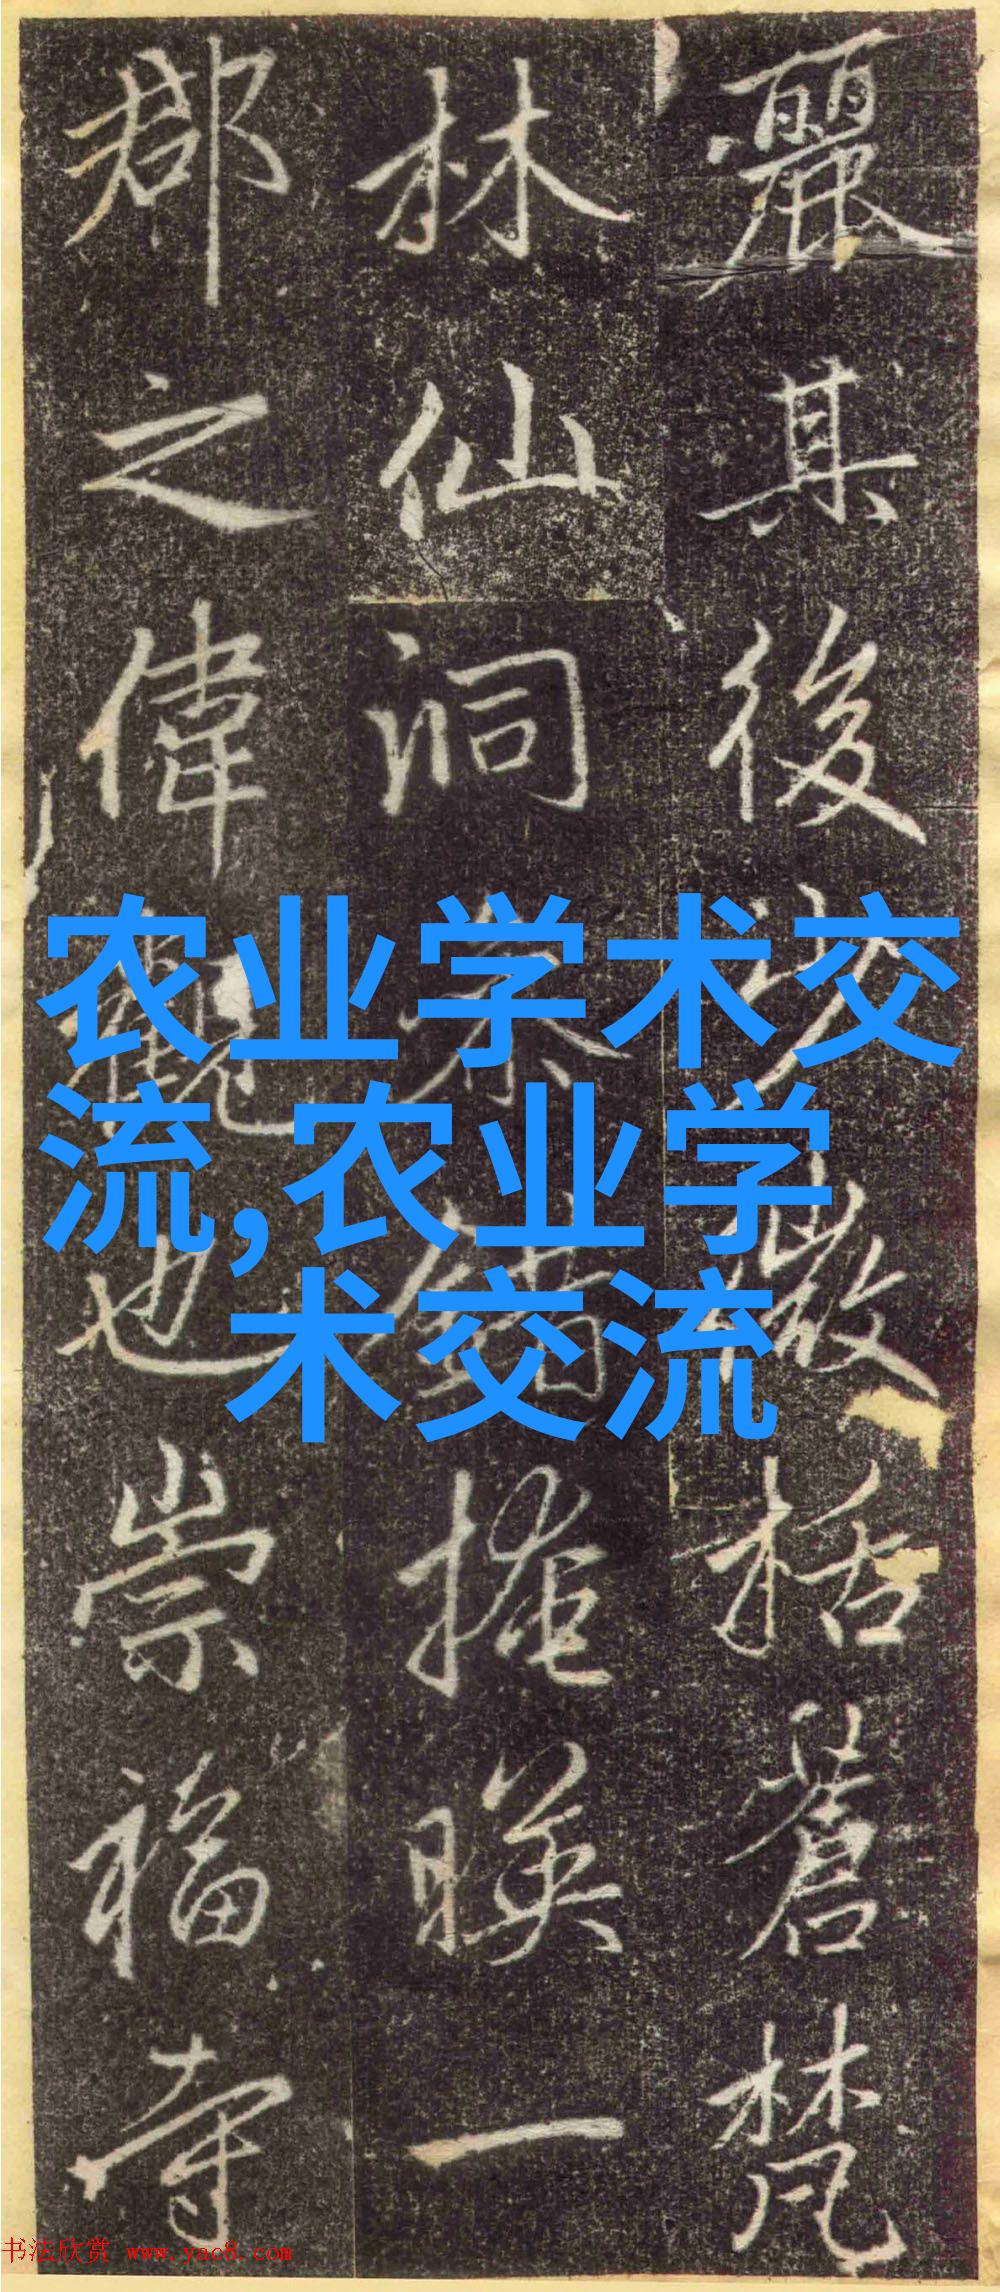 麗其後以巖括蒼梵
林仙洞參錯掩暎一
郡之偉觀也崇福寺
农业学术交
流,农业学
术交流
书法欣赏 www.yac8.com